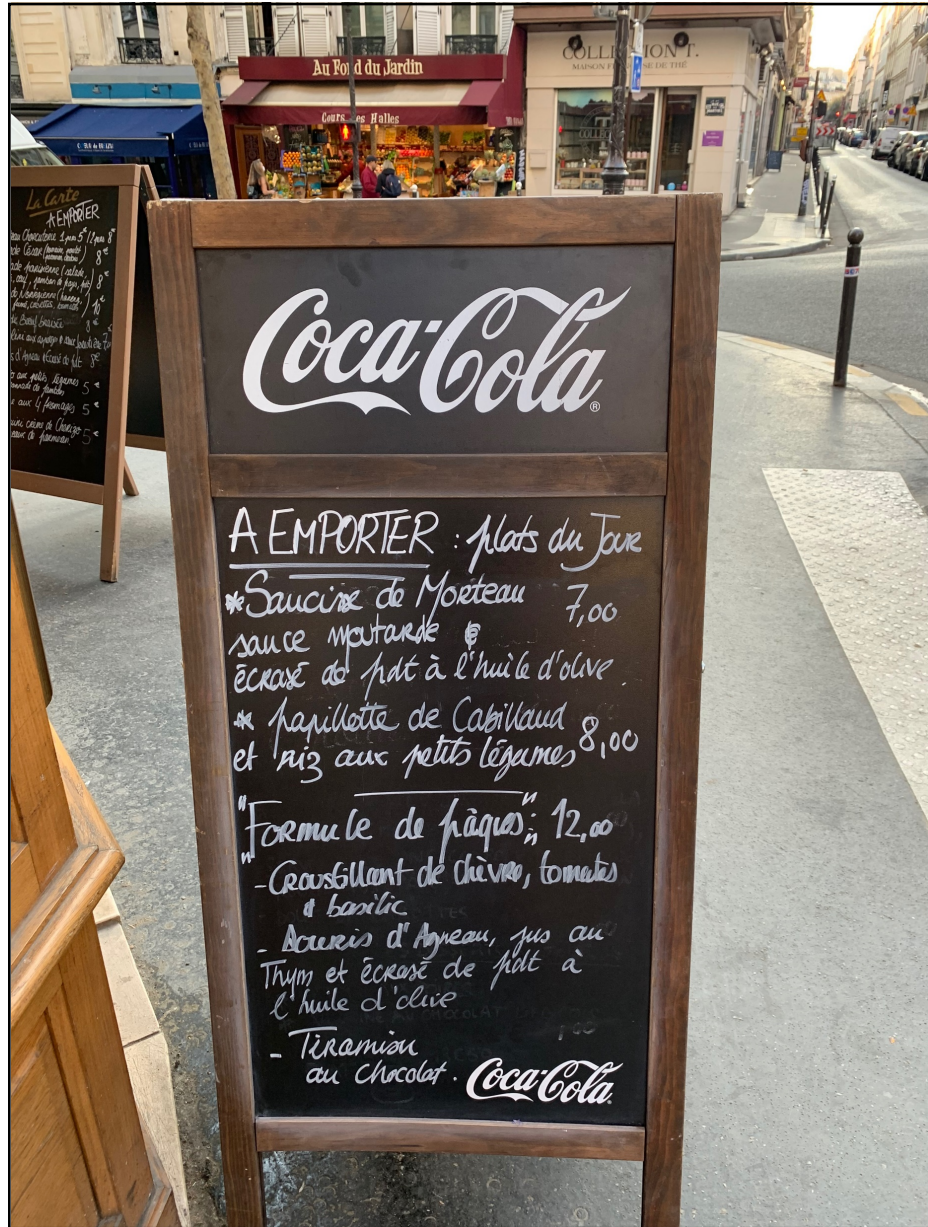 Au Fond du Jardin
Cours des Halles
COLLECTION T.
La Carte
A EMPORTER
8€
8€
8€
10€
5€
aux 4 fromages 5€
crème de Chorizo 5€
Coca-Cola
®
A EMPORTER : plats du Jour
* Saucisse de Morteau 7,00
sauce moutarde &
écrasé de pdt à l'huile d'olive
* papillotte de Cabillaud
et riz aux petits légumes 8,00
"Formule de pâques": 12,00
- Croustillant de chèvre, tomates
& basilic
- Souris d'Agneau, jus au
Thym et écrasé de pdt à
l'huile d'olive
- Tiramisu
au Chocolat.
Coca-Cola